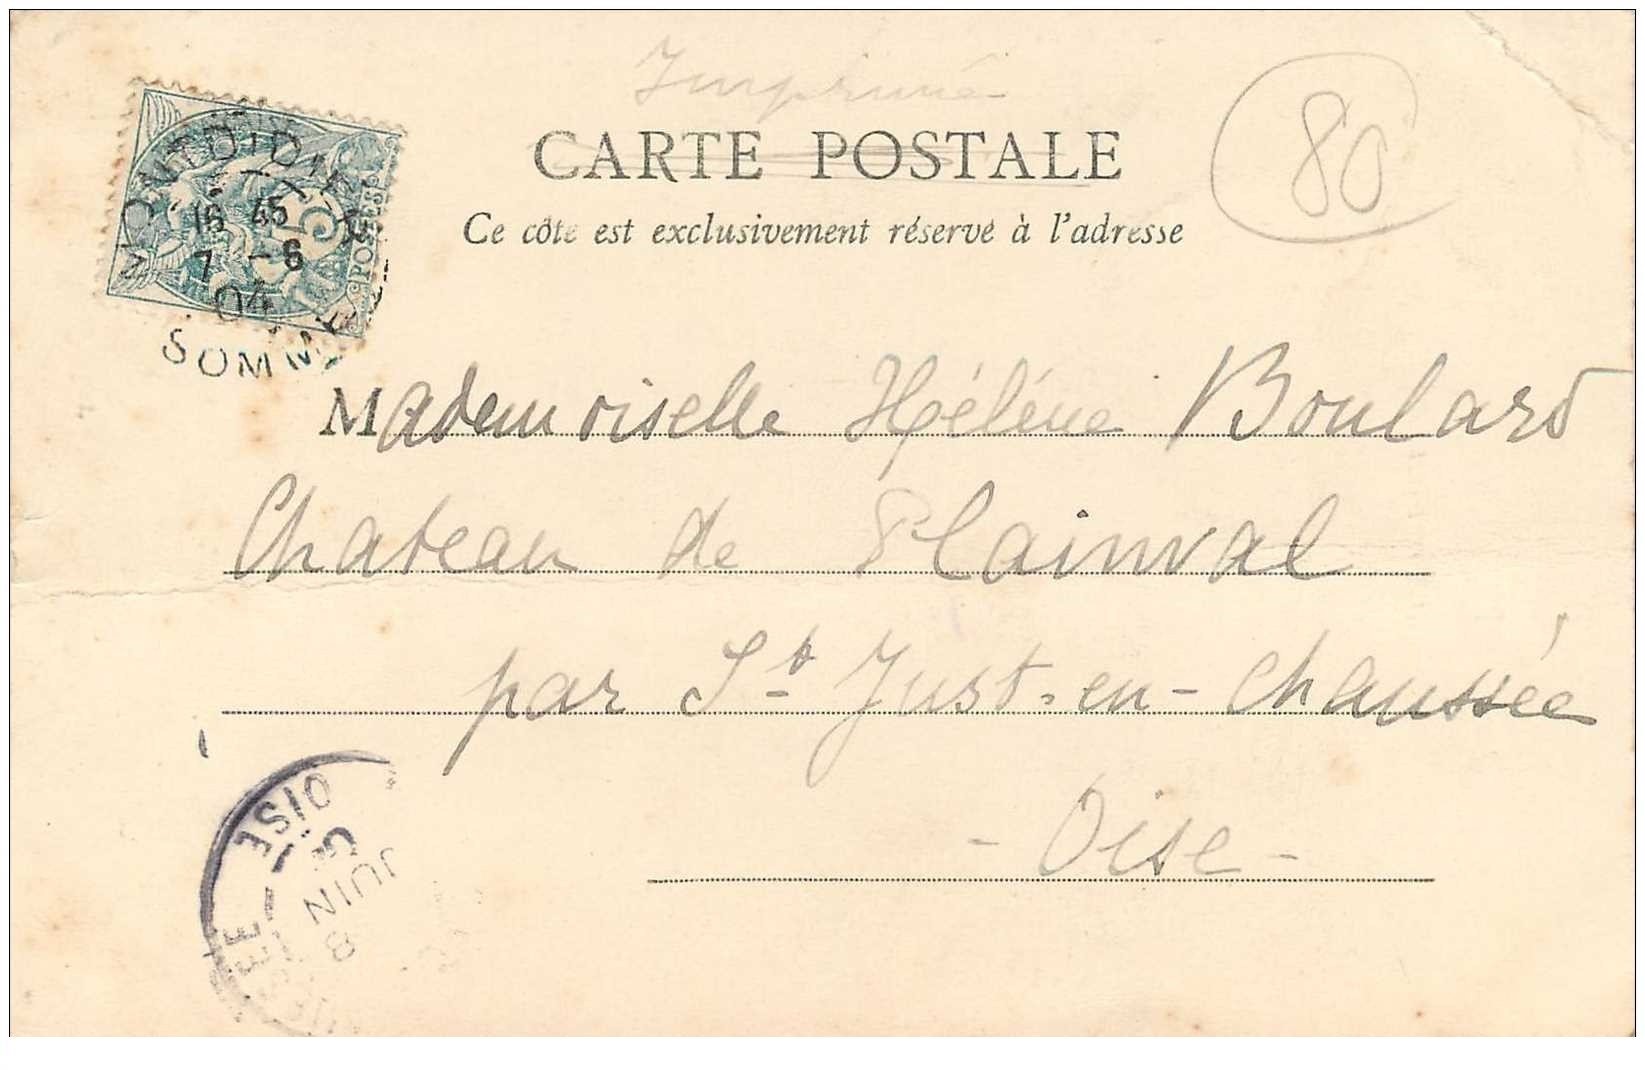 Imprimé
CARTE POSTALE
80
Ce côté est exclusivement réservé à l'adresse
MONTDIDIER
16 45
7 - 6
04
SOMME
5
POSTES
Mademoiselle Hélène Boulard
Chateau de Plainval
par St Just-en-Chaussée
- Oise -
OISE
8 JUIN